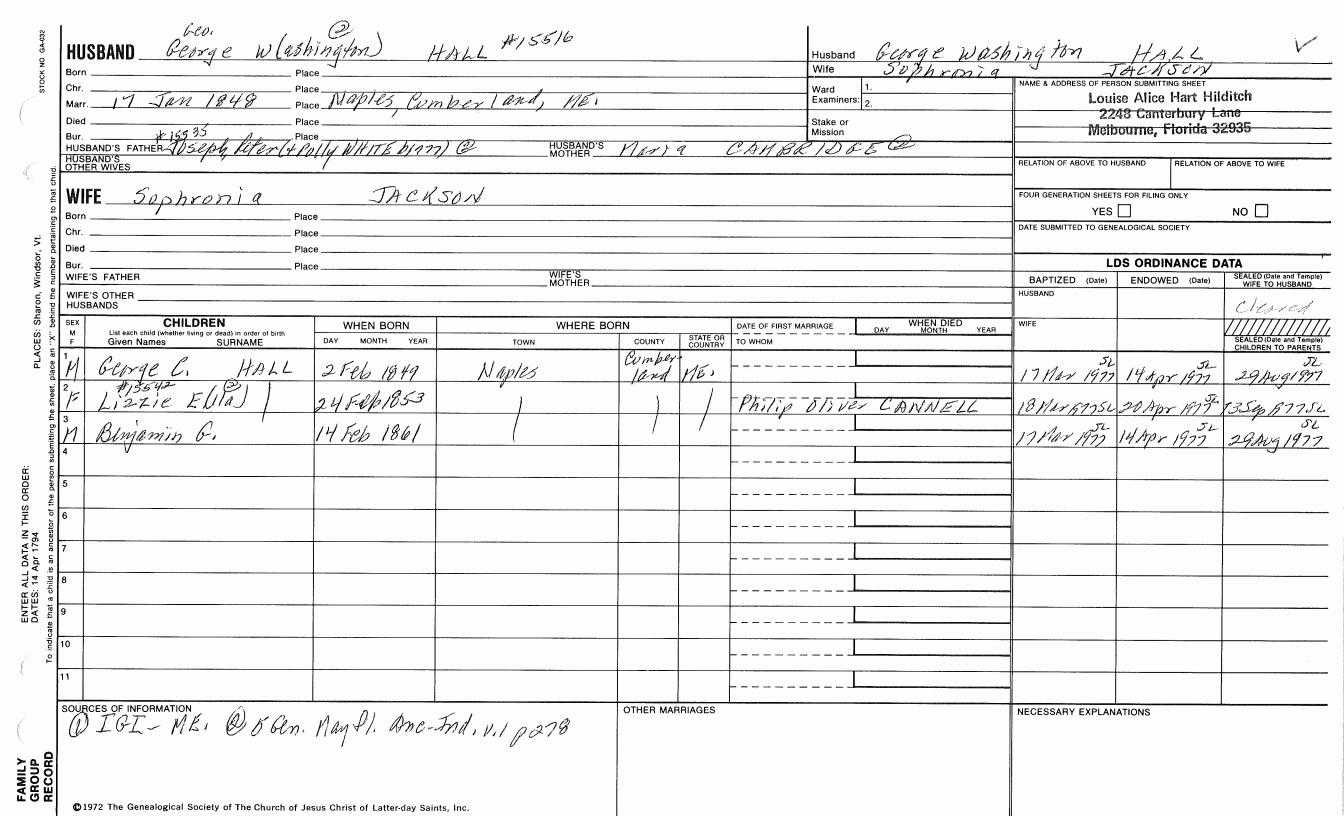 STOCK NO. GA-032
Geo. ②
HUSBAND George W(ashington) HALL #15516
Born Place
Chr. Place
Marr. 17 Jan 1848 Place Naples, Cumberland, ME.
Died Place
Bur. #15535 Place
HUSBAND'S FATHER Joseph Peter (+ Polly WHITE ②
HUSBAND'S MOTHER Maria CAMBRIDGE ②
HUSBAND'S OTHER WIVES
WIFE Sophronia JACKSON
Born Place
Chr. Place
Died Place
Bur. Place
WIFE'S FATHER WIFE'S MOTHER
WIFE'S OTHER HUSBANDS
Husband George Washington HALL
Wife Sophronia JACKSON
Ward Examiners: 1.
2.
Stake or Mission
NAME & ADDRESS OF PERSON SUBMITTING SHEET
Louise Alice Hart Hilditch
2248 Canterbury Lane
Melbourne, Florida 32935
RELATION OF ABOVE TO HUSBAND RELATION OF ABOVE TO WIFE
FOUR GENERATION SHEETS FOR FILING ONLY
YES NO
DATE SUBMITTED TO GENEALOGICAL SOCIETY
LDS ORDINANCE DATA
BAPTIZED (Date) ENDOWED (Date) SEALED (Date and Temple) WIFE TO HUSBAND
HUSBAND
Cleared
WIFE
SEALED (Date and Temple) CHILDREN TO PARENTS
SEX M F
CHILDREN
List each child (whether living or dead) in order of birth
Given Names SURNAME
WHEN BORN
DAY MONTH YEAR
WHERE BORN
TOWN COUNTY STATE OR COUNTRY
DATE OF FIRST MARRIAGE
TO WHOM
WHEN DIED
DAY MONTH YEAR
1 M George C. HALL 2 Feb 1849 Naples Cumberland ME. 17 Mar 1977 SL 14 Apr 1977 SL 29 Aug 1977 SL
#15542 ②
2 F Lizzie E(lla) 24 Feb 1853 Philip Oliver CANNELL 18 Mar 1977 SL 20 Apr 1977 SL 13 Sep 1977 SL
3 M Benjamin G. 14 Feb 1861 17 Mar 1977 SL 14 Apr 1977 SL 29 Aug 1977 SL
4
5
6
7
8
9
10
11
SOURCES OF INFORMATION
① IGI - ME. ② 5 Gen. Mayfl. Anc-Ind, v.1 p278
OTHER MARRIAGES
NECESSARY EXPLANATIONS
©1972 The Genealogical Society of The Church of Jesus Christ of Latter-day Saints, Inc.
PLACES: Sharon, Windsor, Vt.
To indicate that a child is an ancestor of the person submitting the sheet, place an "X" behind the number pertaining to that child.
ENTER ALL DATA IN THIS ORDER:
DATES: 14 Apr 1794
FAMILY GROUP RECORD